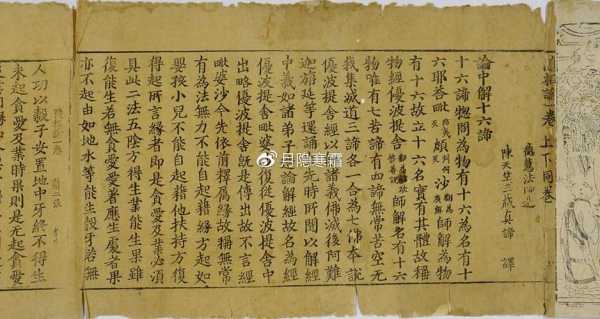 隨相論一卷 上下同卷
德慧法師造
陳天竺三藏真諦 譯
論中解十六諦
十六諦搃問為物有十六為名有十
六耶荅毗頗沙師解為物
有十六故立十六名實有其體故稱
物經優波提舍師解名有十六
物唯有七若諦有四諦無常苦空无
我集滅道三諦各一合為七佛本說
優波提舍以解諸義佛滅後阿難
迦旃延等還誦出先時所聞以解經
中義如諸弟子造論解經故名為經
優波提舍毗婆沙復從優波提舍中
出略優波提舍既是傳出故不言經
毗婆沙今先依釋属緣故稱無常
有為法無力不能自起藉緣方起如
嬰孩小兒不能自起藉他扶持方復
得起所言緣者即是貪愛及業必須
具此二法五陰方得生業能生果雖
復能生若無貪愛愛著應生處者果
亦不起由如地水等能生穀牙若無
人功以穀子安置地中牙終不得生
未起貪愛及業時果則是无起貪愛
月隐寒霜